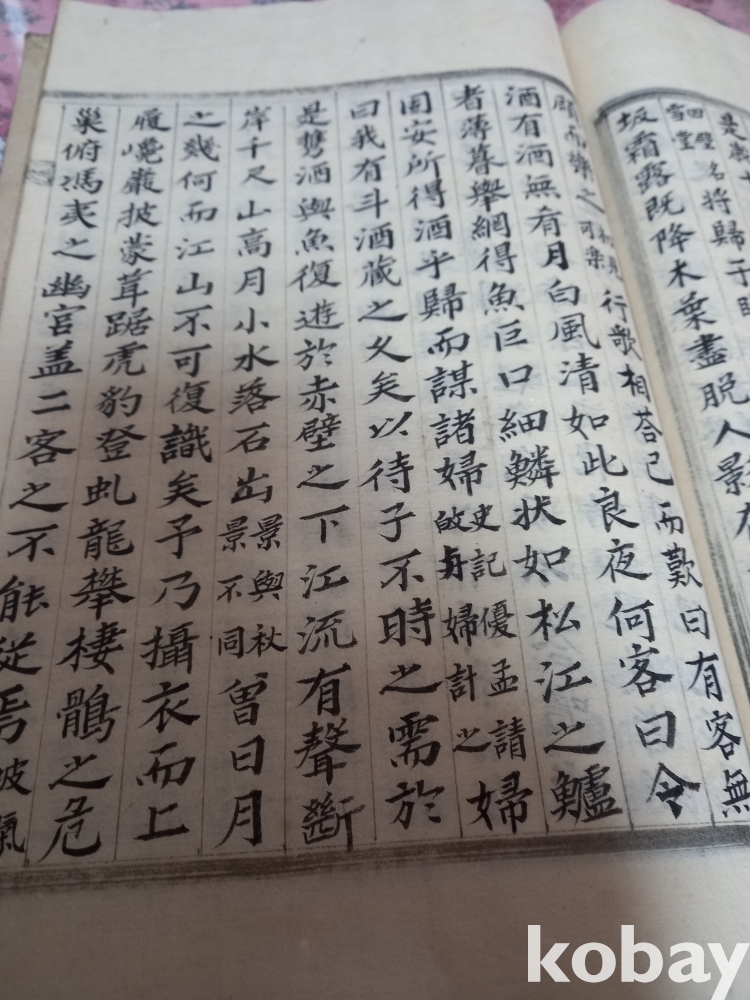 是歲十
四壁名雪堂將歸于臨
坂霜露既降木葉盡脫人景在
顧而樂之見可樂行歌相荅已而歎曰有客無
酒有酒無肴月白風清如此良夜何客曰今
者薄暮舉網得魚巨口細鱗状如松江之鱸
固安所得酒乎歸而謀諸婦史記優孟請故與婦計之婦
曰我有斗酒藏之久矣以待子不時之需於
是携酒與魚復遊於赤壁之下江流有聲斷
岸千尺山高月小水落石出景與秋景不同曾日月
之幾何而江山不可復識矣予乃攝衣而上
履巉巖披蒙茸踞虎豹登虬龍攀棲鶻之危
巢俯馮夷之幽宮盖二客之不能從焉坡氣
kobay